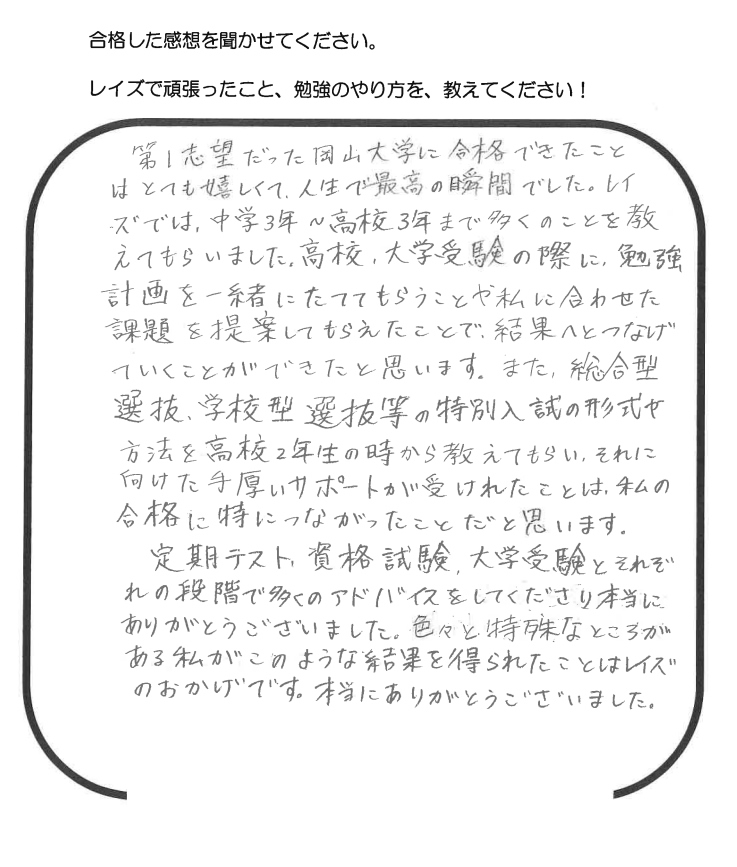 合格した感想を聞かせてください。
レイズで頑張ったこと、勉強のやり方を、教えてください！
第1志望だった岡山大学に合格できたこと
はとても嬉しくて、人生で最高の瞬間でした。レイ
ズでは、中学3年～高校3年まで多くのことを教
えてもらいました。高校、大学受験の際に、勉強
計画を一緒にたててもらうことや私に合わせた
課題を提案してもらえたことで、結果へとつなげ
ていくことができたと思います。また、総合型
選抜、学校型選抜等の特別入試の形式や
方法を高校2年生の時から教えてもらい、それに
向けた手厚いサポートが受けれたことは、私の
合格に特につながったことだと思います。
定期テスト、資格試験、大学受験とそれぞ
れの段階で多くのアドバイスをしてくださり本当に
ありがとうございました。色々と特殊なところが
ある私がこのような結果を得られたことはレイズ
のおかげです。本当にありがとうございました。